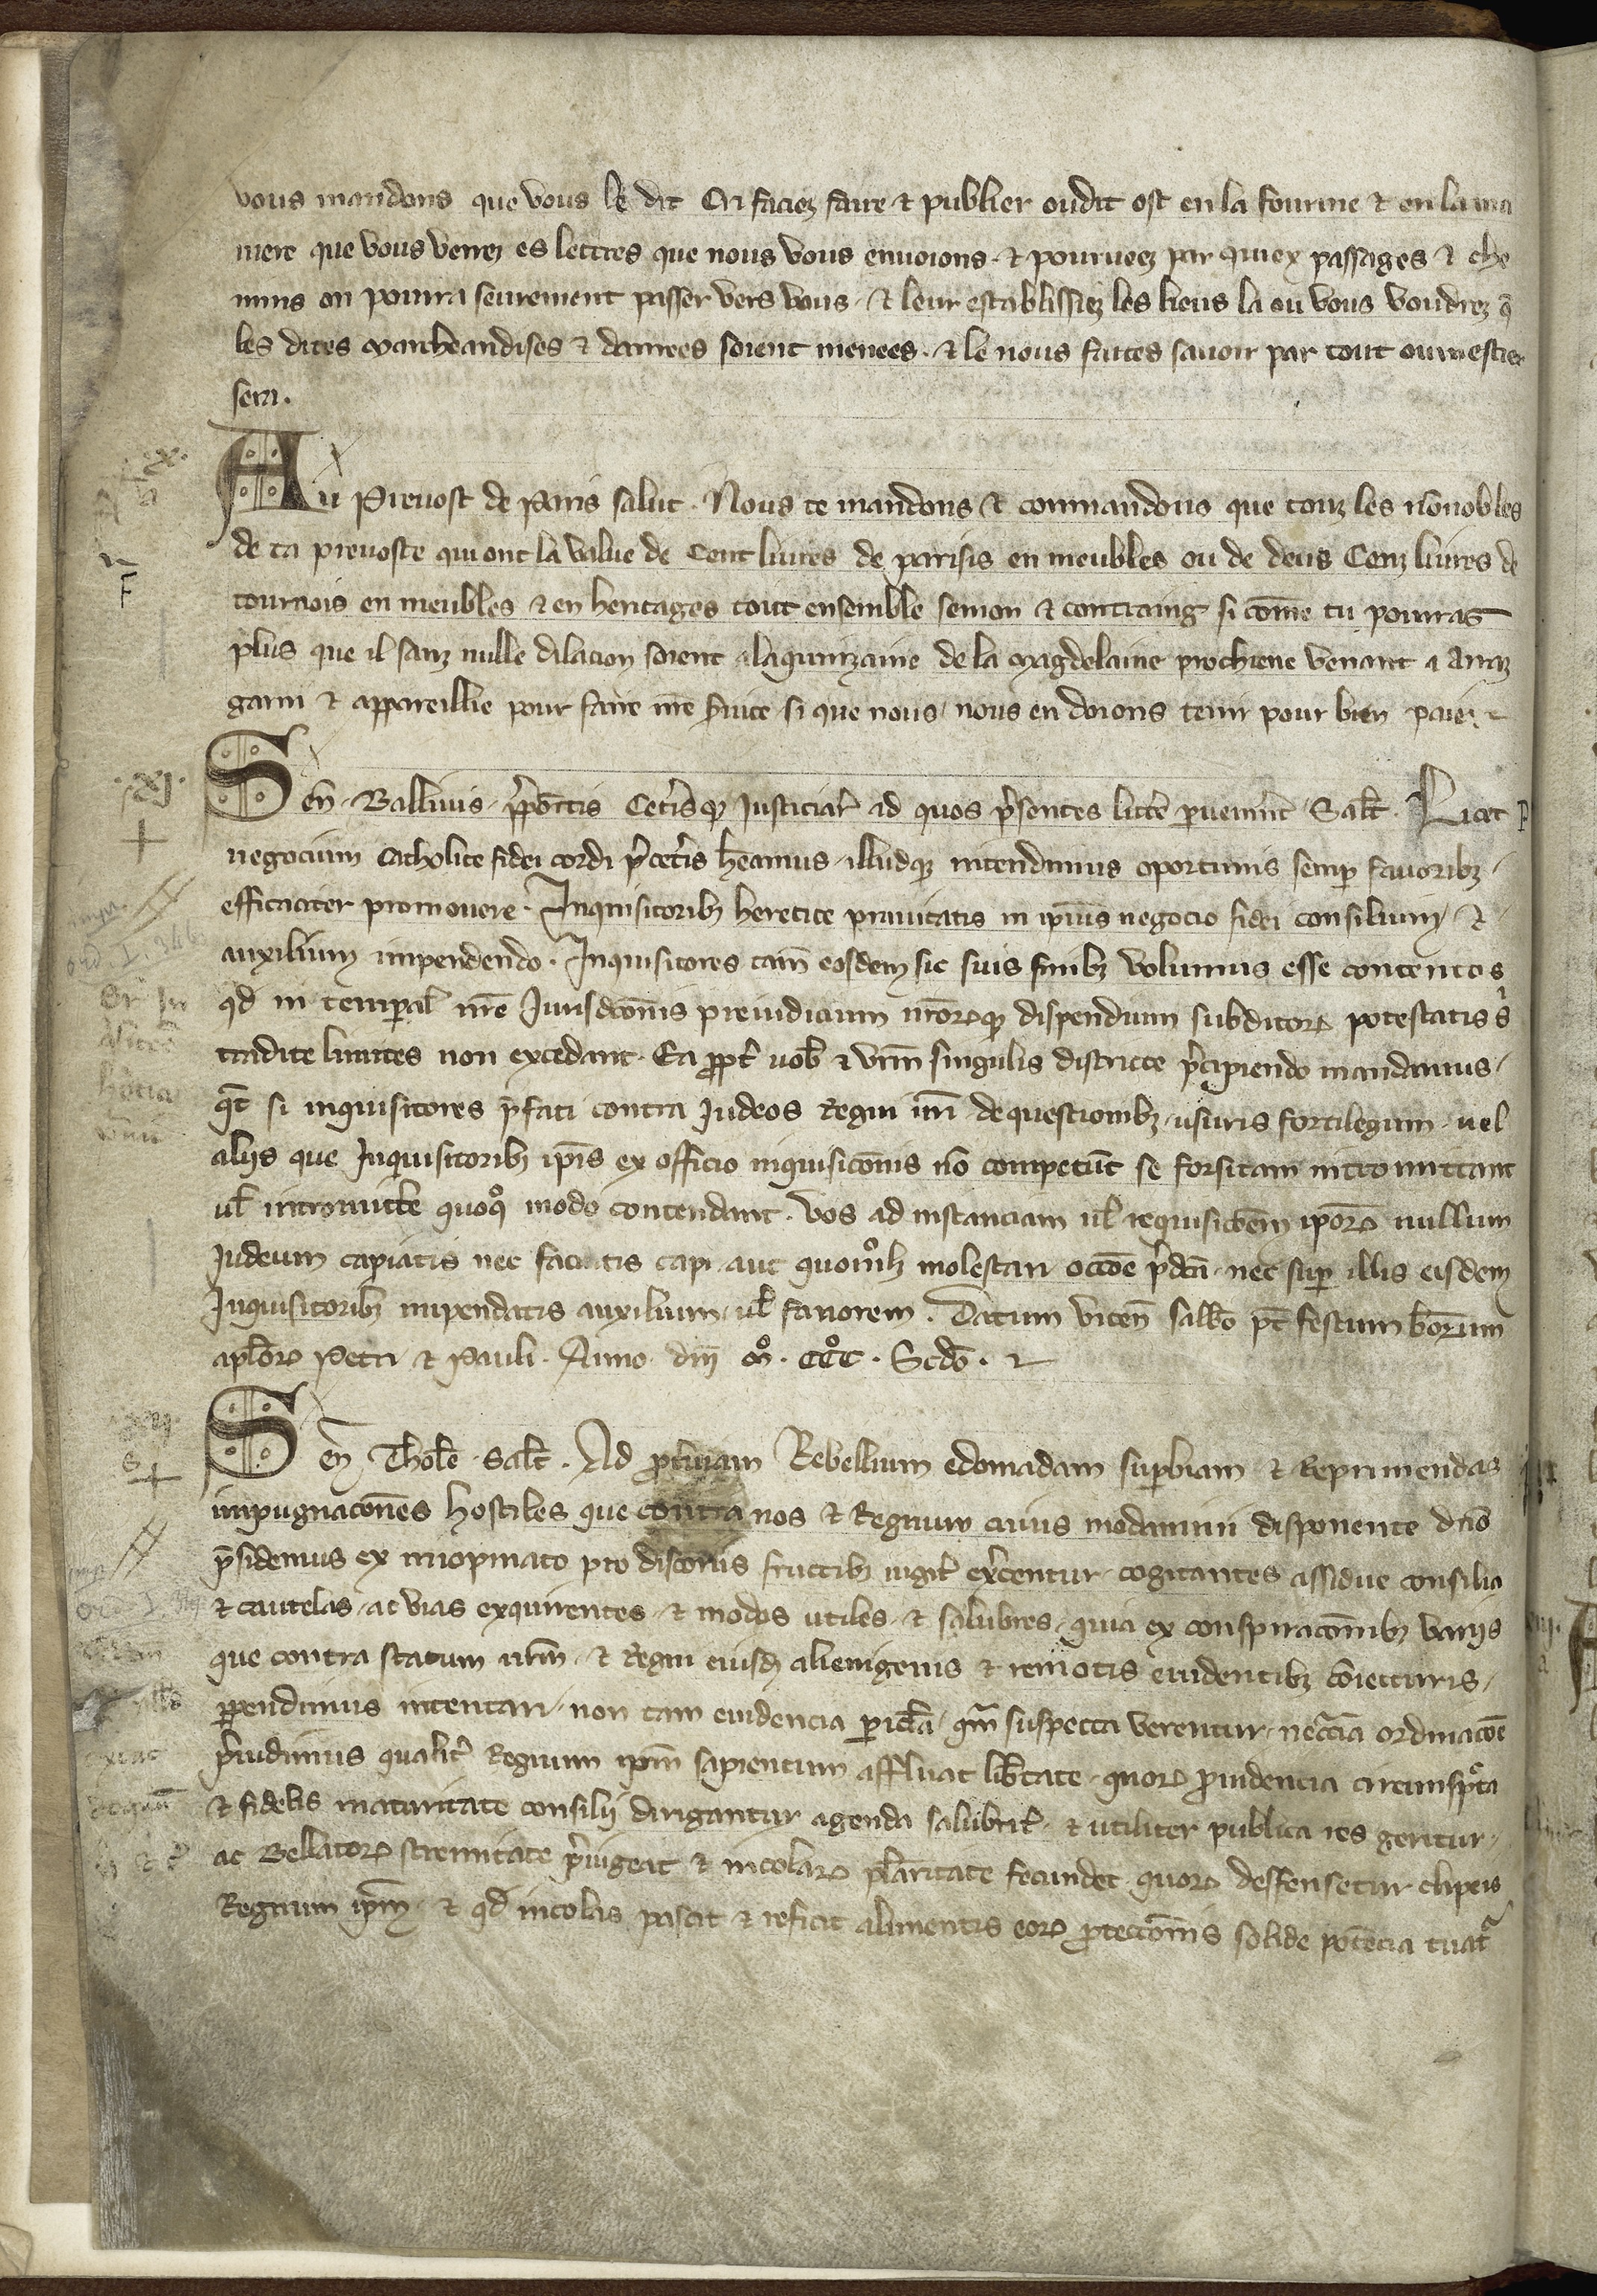 vous mandons que vous le dit Cri faciez faire & publier oudit ost en la fourme & en la ma
niere que vous verrez es lettres que nous vous envoions. & pourveez par quiex passages & che
mins on pourra seurement passer vers vous. & leur establissiez les lieus la ou vous voudrez q̃
les dites marcheandises & denrees soient menees. & le nous faites savoir par tout ou mestier
sera.
.x.
Au Prevost de Paris salut. Nous te mandons & commandons que touz les nõnobles
de ta prevoste qui ont la value de Cent livres de parisis en meubles ou de deus Cenz livres de
tournois en meubles & en heritages tout ensemble semon & contraing si cõme tu pourras
plus que il sanz nulle dilacion soient a la quinzaine de la Magdelaine prochiene venant a Arraz
garni & appareillie pour faire nr̃e s̃vice si que nous, nous en doions tenir pour bien paie.
.xj.
Sen̄. Ballivis. p̃põitis Cet̃isq; Justiciar̃ ad quos p̃sentes litt̃e pvenerint Salt̃. Licet
negocium Catholice fidei cordi p̃ cet̃is hẽamus, illudq; intendimus oportunis semp favorib;
efficaciter promovere. Inquisitorib; heretice pravitatis in ipius negocio fidei consilium, &
auxilium inpendendo. Inquisitores tam̃ eosdem sic suis finib; volumus esse contentos
qd in temperal̃ nr̃e Jurisdcõnis preiudicium nr̃orq; dispendium subditor̃ potestatis s̃
tradite limites non excedant. Ea ppt̃ vob̃ & vr̃m singulis districte p̃cipiendo mandamus,
q̃t si inquisitores p̃fati contra Judeos Regni nr̃i de questionib; usuris sortilegium. vel
aliis que Inquisitorib; ip̃is ex officio inquisicõnis nõ competũt se forsitam intromittant
vl̃ intromitt̃e quoq̃ modo contendant. vos ad instanciam vl̃ requisicõem ip̃or̃ nullum
Judeum capiatis nec faciatis capi. aut quom̃lib; molestari occõe p̃dcã. nec sup illis eisdem
Inquisitorib; inpendatis auxilium, vl̃ favorem. Datum vicen̄ sabb̃o p̃t festum b̃orum
apl̃or̃ Petri & Pauli. Anno dñi m̊. ccc̊. Scdõ.
Sen̄ Thol̃e Salt̃. Ad ptvam Rebellium edomadam supbiam & Reprimendas
inpugnacões hostiles que contra nos & Regnum cuius modamini disponente dño
p̃sidemus ex inopinato pro discoriis fructib; iugit̃ ex̃centur. cogitantes assidue consilia
& cautelas, ac vias exquirentes & modos utiles & salubres, quia ex conspiracõnib; variis
que contra statum nr̃m & Regni eiusd; alienigenis & remotis evidentib; cõiecturis,
ppendimus intentari, non tam evidencia picl̃a, q̃m suspecta verentur, necc̃ia ordinacõe
p̃vidimus qualit̃ Regnum ip̃m sapientum affluat lib̃tate. quor̃ pvidencia circumsp̃ta
& fidelis maturitate consilii dirigantur agenda salubrit̃. & utiliter publica res geritur,
ac Bellator̃ strenuitate p̃vigeat & incolar̃ pl̃aritate fecundet quor̃ deffensetur clipeis
Regnum ip̃m, & qd incolas pascit & reficit alimentis eor̃ ptectõnis solide potẽcia tuat̃